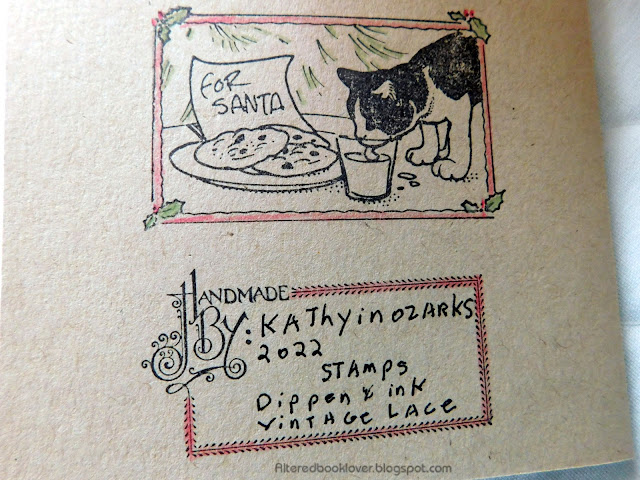 FOR
SANTA
HANDMADE
BY: KAThyinOZARKS
2022
STAMPS
Dippen & ink
VINTAGE LACE
Alteredbooklover.blogspot.com